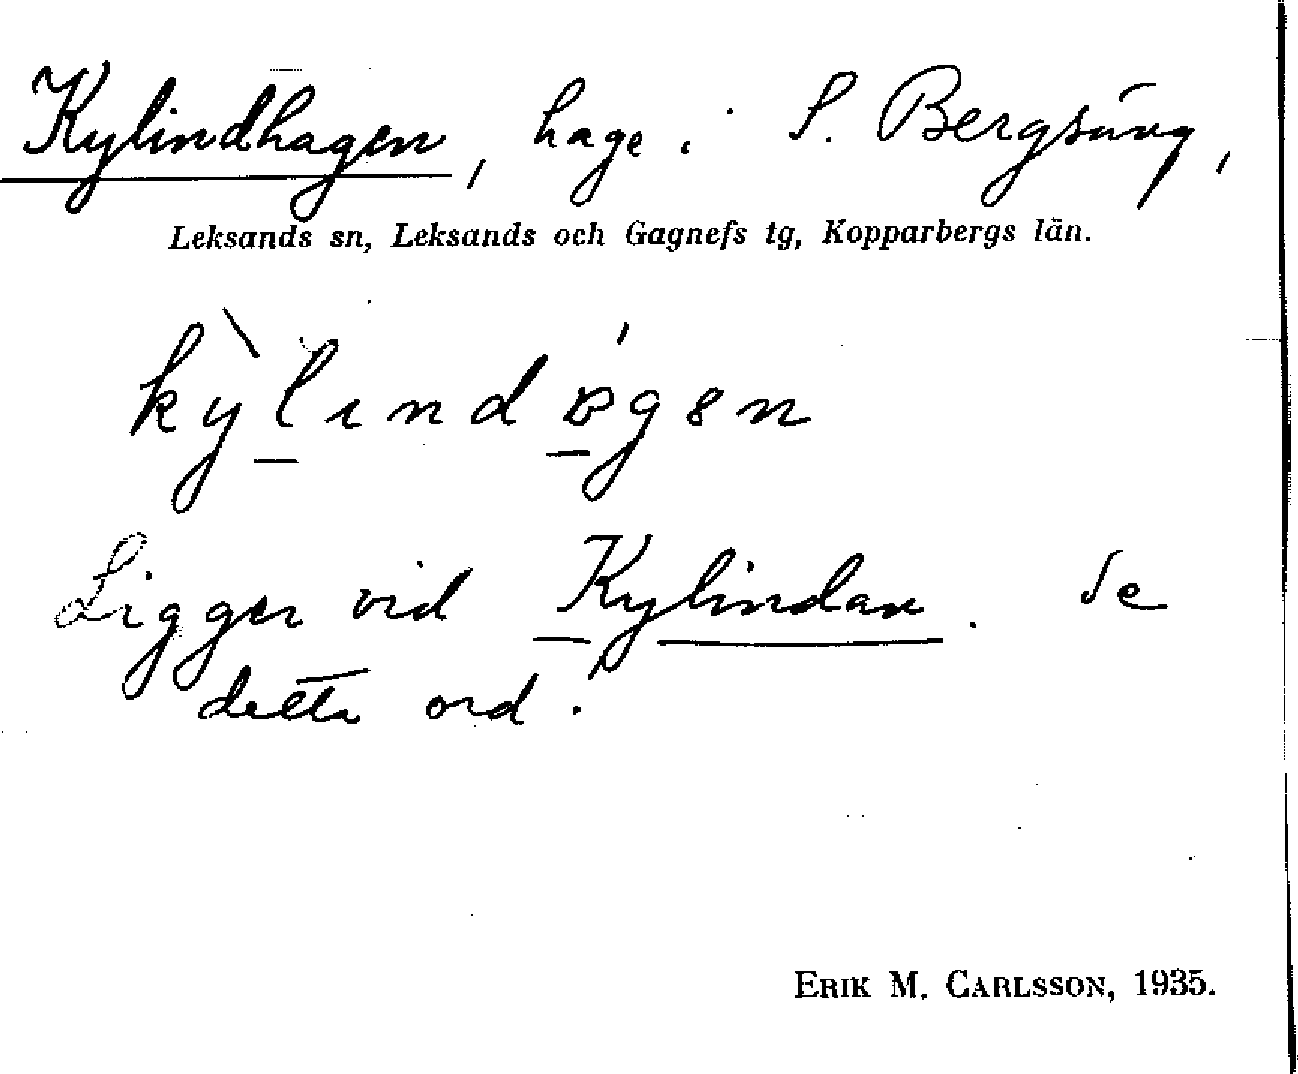 Kylindhagen, hage i S. Bergsäng,
Leksands sn, Leksands och Gagnefs tg, Kopparbergs län.
Ligger vid Kylindan. Se
detta ord.
ERIK M. CARLSSON, 1935.